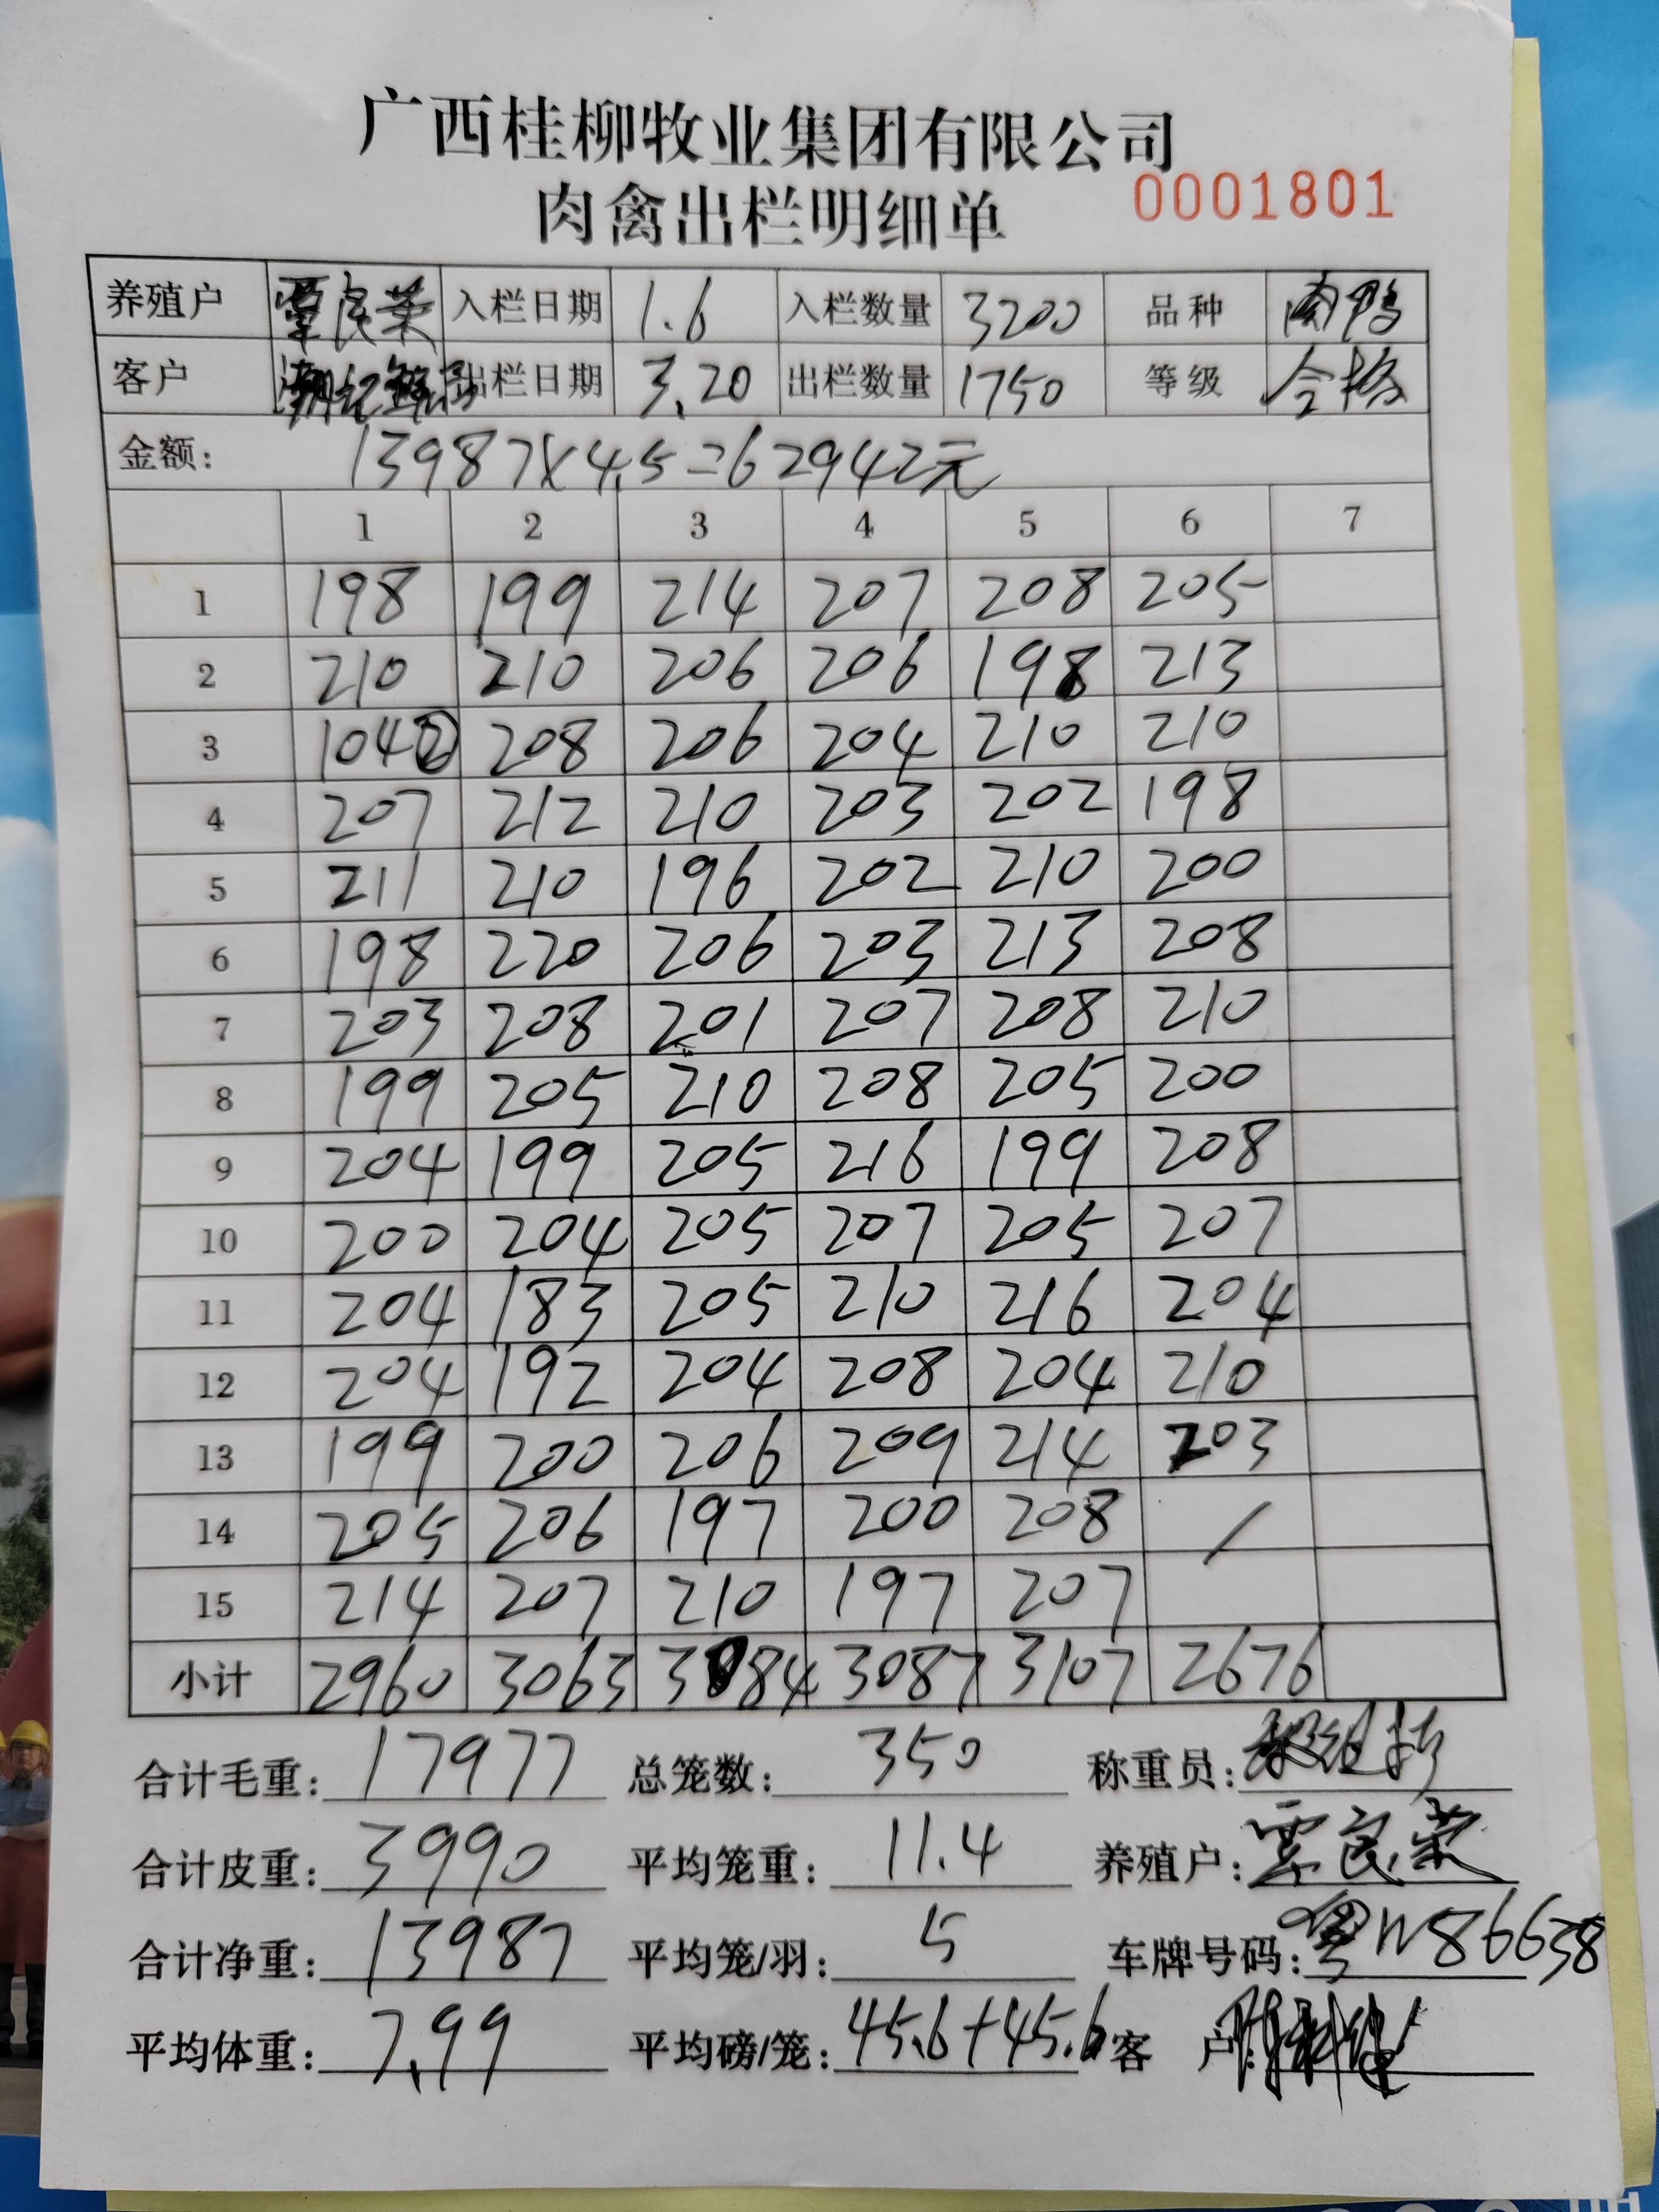 广西桂柳牧业集团有限公司
肉禽出栏明细单 0001801
养殖户 覃良荣 入栏日期 1.6 入栏数量 3200 品种 肉鸭
客户 出栏日期 3.20 出栏数量 1750 等级 合格
金额: 13987×4.5=62942元
1 2 3 4 5 6 7
1 198 199 214 207 208 205
2 210 210 206 206 198 213
3 104② 208 206 204 210 210
4 207 212 210 203 202 198
5 211 210 196 202 210 200
6 198 220 206 203 213 208
7 203 208 201 207 208 210
8 199 205 210 208 205 200
9 204 199 205 216 199 208
10 200 204 205 207 205 207
11 204 183 205 210 216 204
12 204 192 204 208 204 210
13 199 200 206 209 214 203
14 205 206 197 200 208 /
15 214 207 210 197 207
小计 2960 3063 3084 3087 3107 2676
合计毛重: 17977 总笼数: 350 称重员:
合计皮重: 3990 平均笼重: 11.4 养殖户: 覃良荣
合计净重: 13987 平均笼/羽: 5 车牌号码: 粤W86638
平均体重: 7.99 平均磅/笼: 45.6+45.6 客 户: